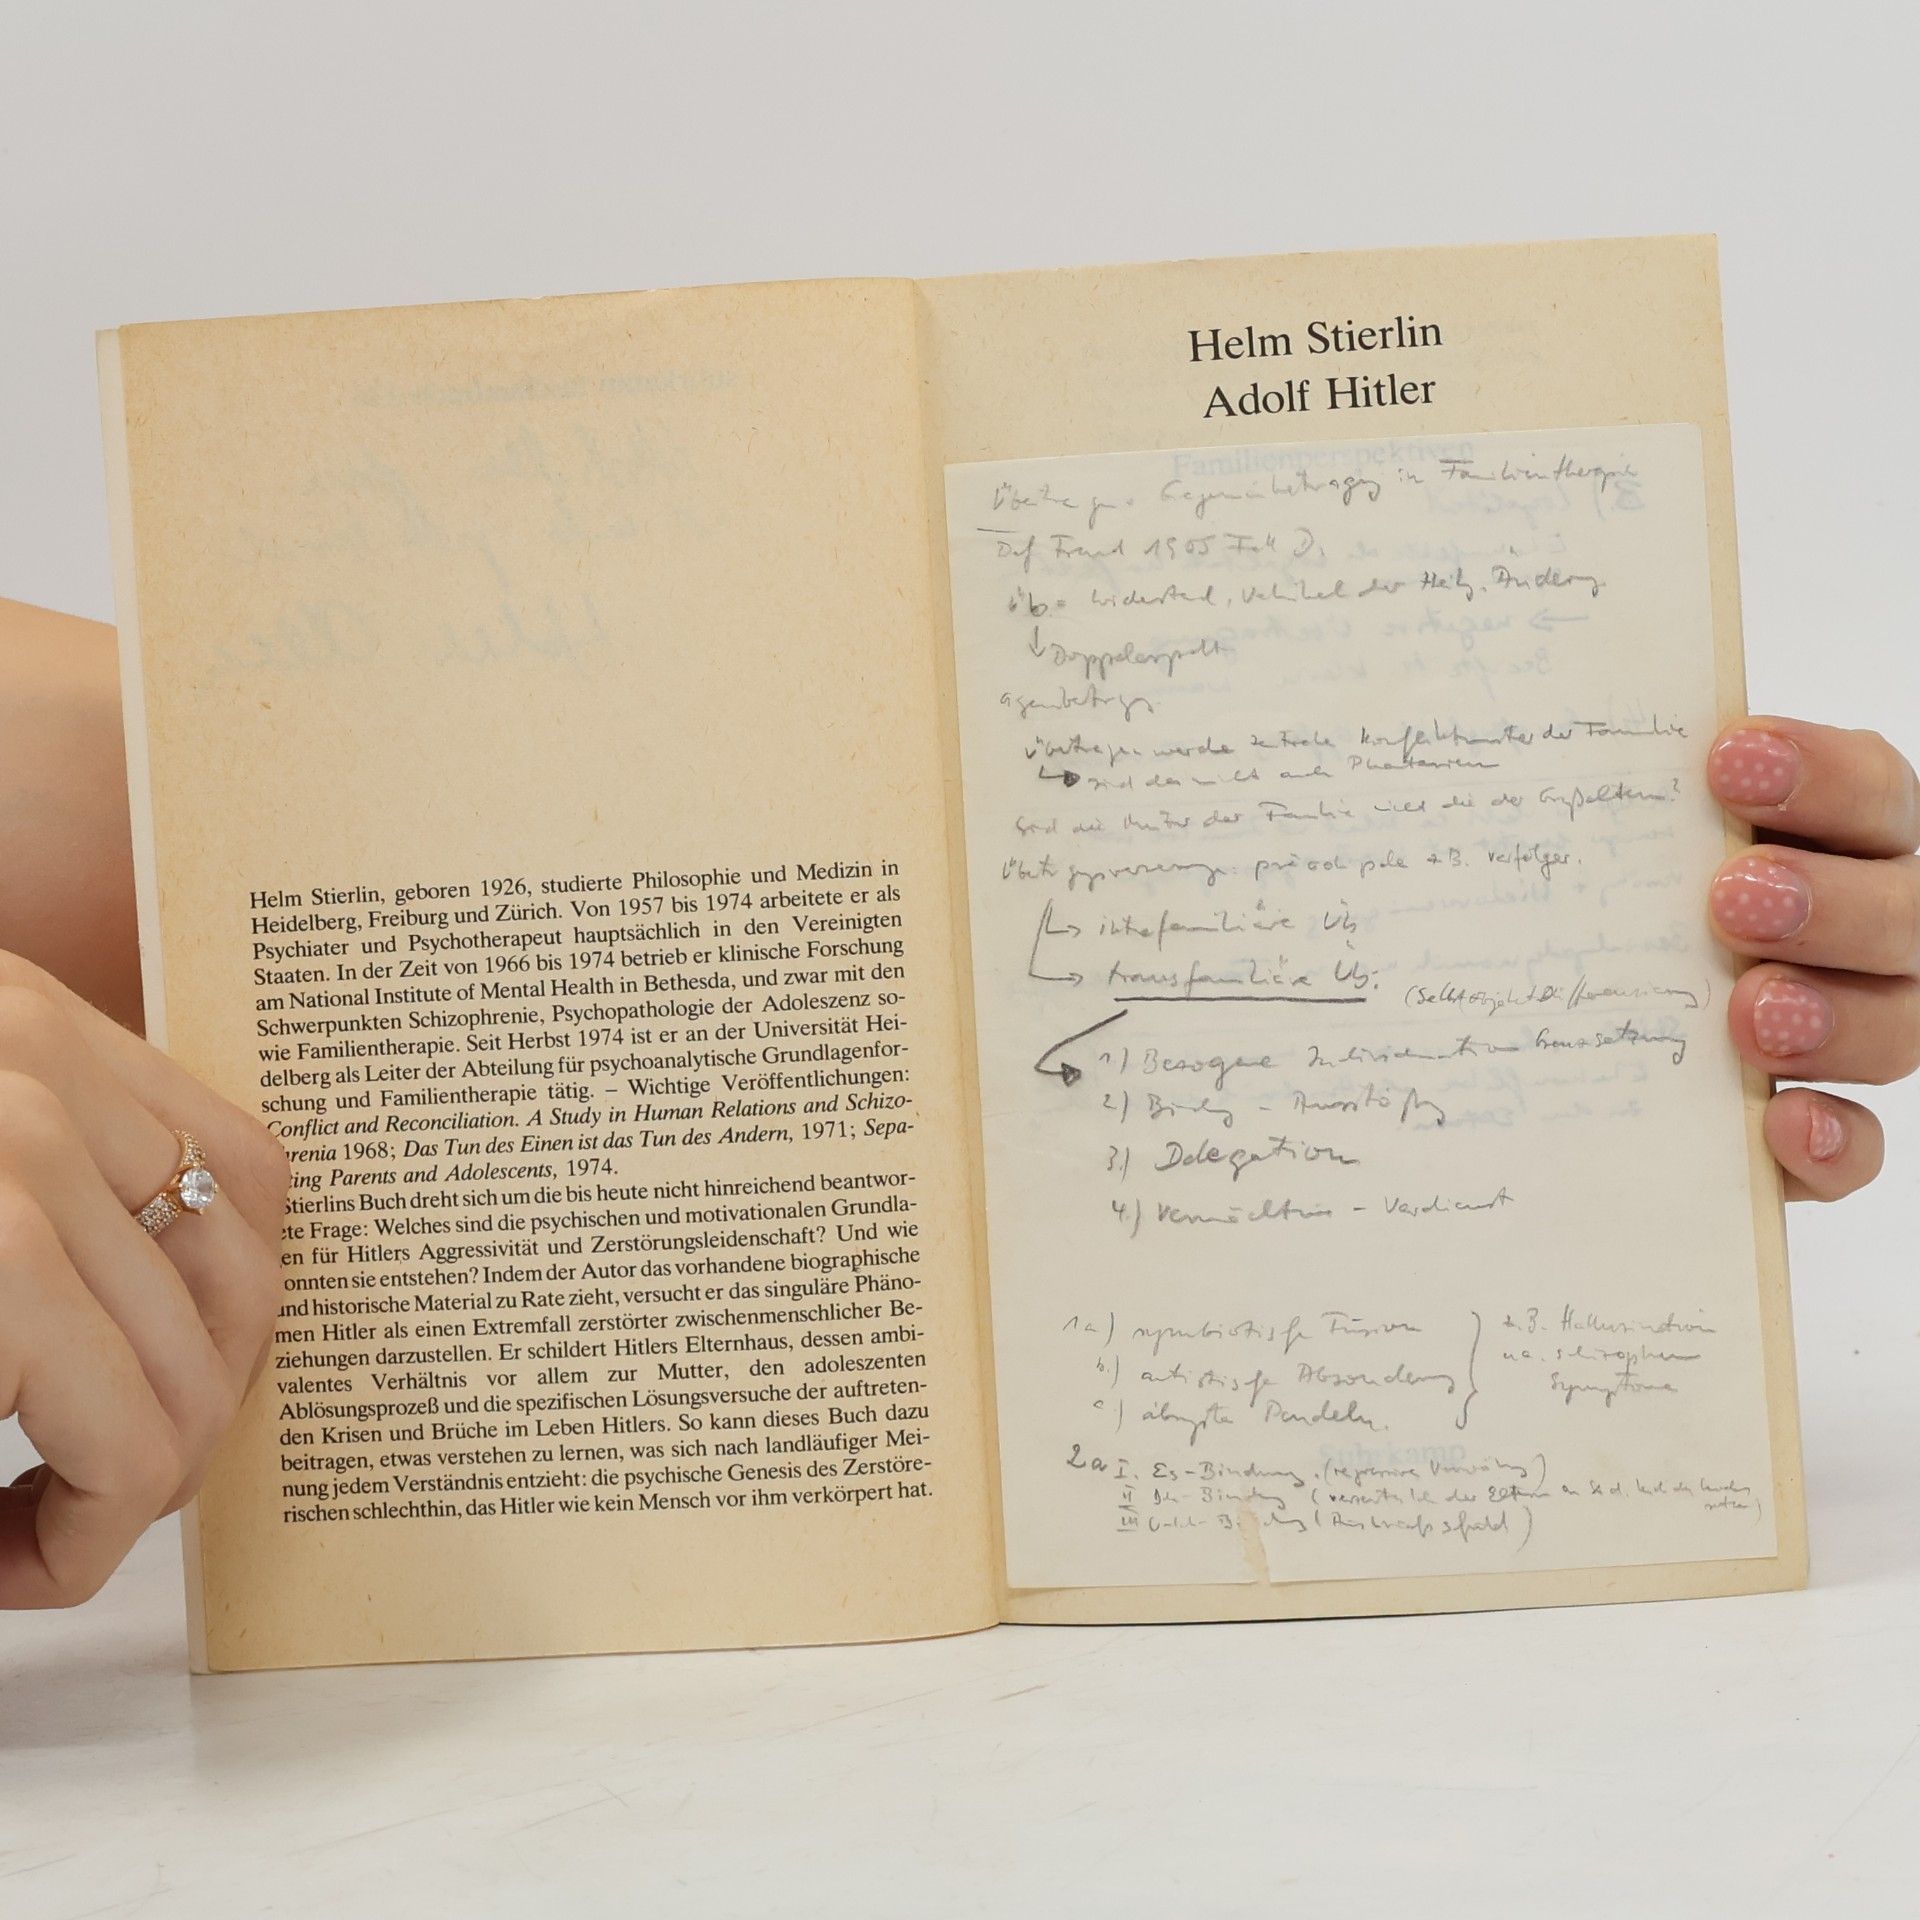 Helm Stierlin, geboren 1926, studierte Philosophie und Medizin in
Heidelberg, Freiburg und Zürich. Von 1957 bis 1974 arbeitete er als
Psychiater und Psychotherapeut hauptsächlich in den Vereinigten
Staaten. In der Zeit von 1966 bis 1974 betrieb er klinische Forschung
am National Institute of Mental Health in Bethesda, und zwar mit den
Schwerpunkten Schizophrenie, Psychopathologie der Adoleszenz so-
wie Familientherapie. Seit Herbst 1974 ist er an der Universität Hei-
delberg als Leiter der Abteilung für psychoanalytische Grundlagenfor-
schung und Familientherapie tätig. – Wichtige Veröffentlichungen:
Conflict and Reconciliation. A Study in Human Relations and Schizo-
hrenia 1968; Das Tun des Einen ist das Tun des Andern, 1971; Sepa-
ting Parents and Adolescents, 1974.
Stierlins Buch dreht sich um die bis heute nicht hinreichend beantwor-
ete Frage: Welches sind die psychischen und motivationalen Grundla-
en für Hitlers Aggressivität und Zerstörungsleidenschaft? Und wie
onnten sie entstehen? Indem der Autor das vorhandene biographische
und historische Material zu Rate zieht, versucht er das singuläre Phäno-
men Hitler als einen Extremfall zerstörter zwischenmenschlicher Be-
ziehungen darzustellen. Er schildert Hitlers Elternhaus, dessen ambi-
valentes Verhältnis vor allem zur Mutter, den adoleszenten
Ablösungsprozeß und die spezifischen Lösungsversuche der auftreten-
den Krisen und Brüche im Leben Hitlers. So kann dieses Buch dazu
beitragen, etwas verstehen zu lernen, was sich nach landläufiger Mei-
nung jedem Verständnis entzieht: die psychische Genesis des Zerstöre-
rischen schlechthin, das Hitler wie kein Mensch vor ihm verkörpert hat.
Helm Stierlin
Adolf Hitler
Familienperspektiven
in Familientherapie
Def Freud 1905 Fall D.
Üb = Widerstand, Vehikel der Heilg. Änderung
der Familie
sind das nicht auch Phantasien
Sind die Muster der Familie nicht die der Großeltern?
z.B. Verfolger.
→ intrafamiliäre Üb
→ transfamiliäre Üb:
(Selbstobjektdifferenzierung)
1) Bezogene Individuation Grenzsetzung
2) Bindg - Ausstoßg
3) Delegation
4) Vermächtnis - Verdienst
1a) symbiotische Fusion
b.) autistische Absonderung
c) Pendeln.
z.B. Halluzination
u.a. schizophrene
Symptome
2a I. Es-Bindung (regressive Verwöhng)
II Ich-Bindung
III
Suhrkamp